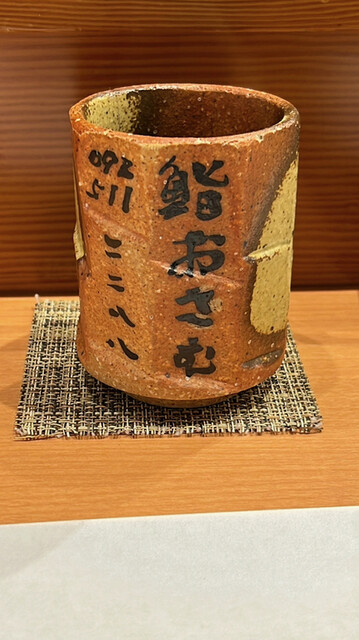 鮨おさむ
092
511
二二八八